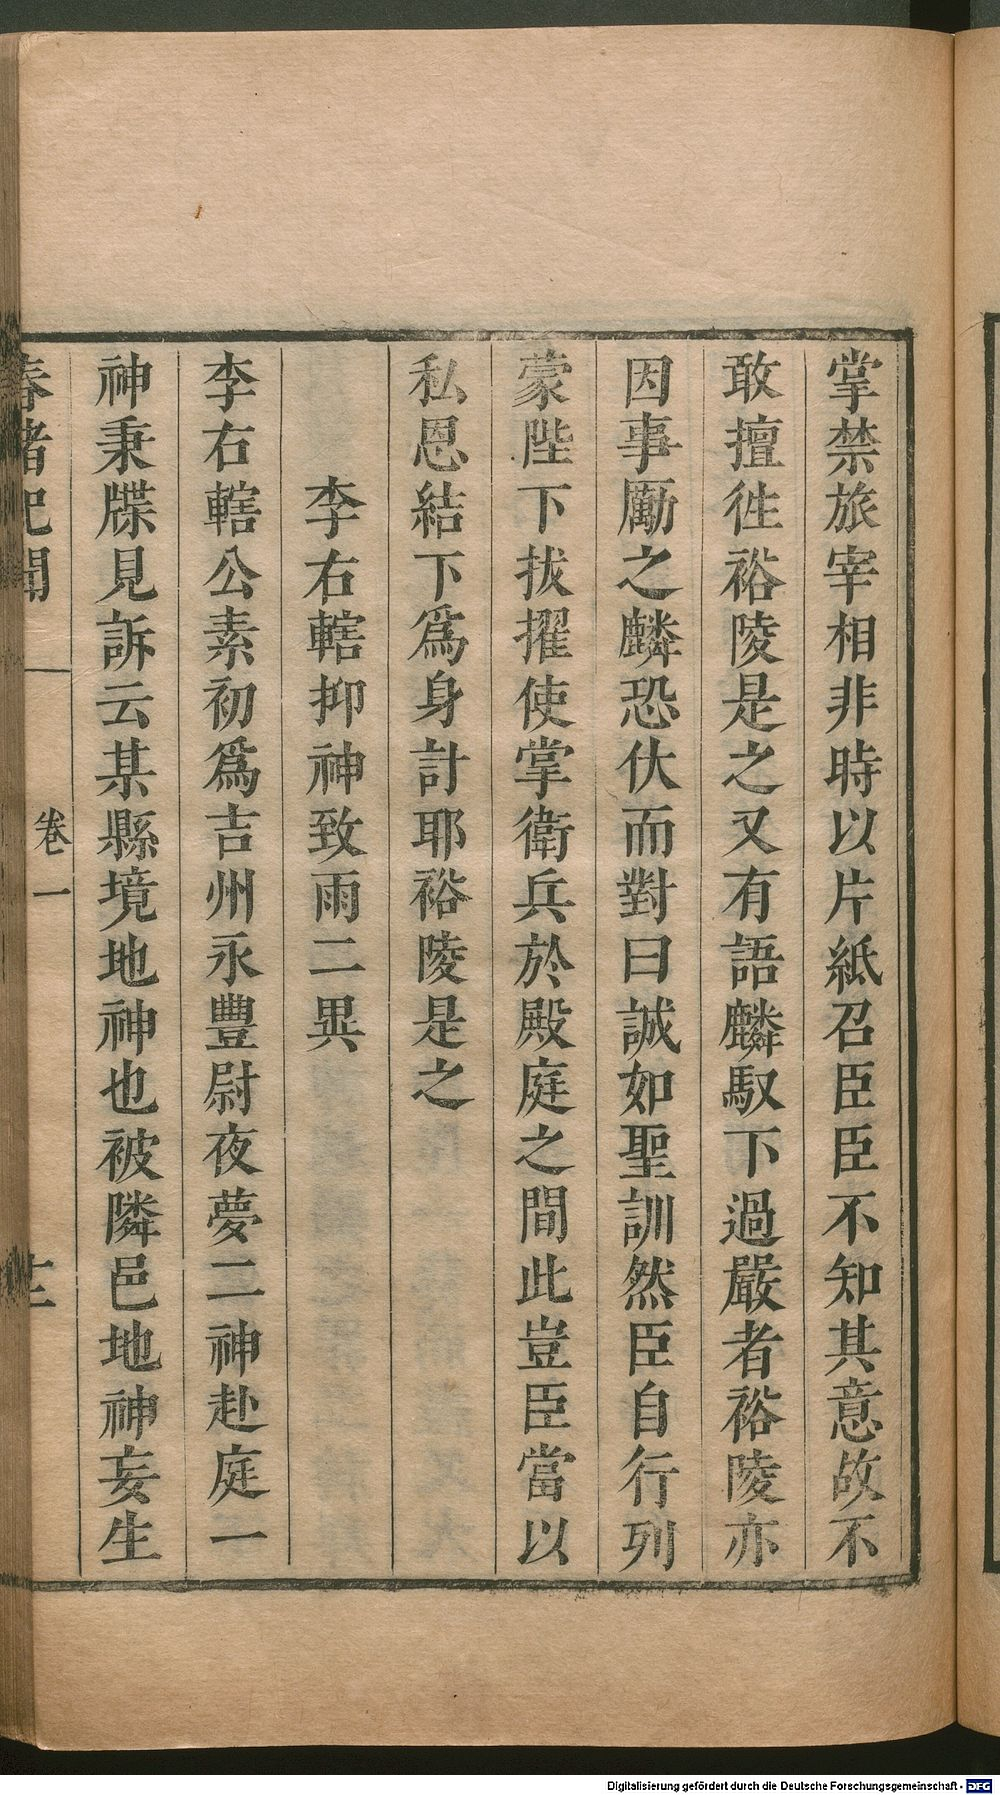 掌禁旅宰相非時以片紙召臣臣不知其意故不
敢擅徃裕陵是之又有語麟馭下過嚴者裕陵亦
因事勵之麟恐伏而對曰誠如聖訓然臣自行列
蒙陛下拔擢使掌衛兵於殿庭之間此豈臣當以
私恩結下爲身計耶裕陵是之
李右轄抑神致雨二異
李右轄公素初爲吉州永豐尉夜夢二神赴庭一
神秉牒見訴云某縣境地神也被隣邑地神妄生
春渚紀聞
卷一
Digitalisierung gefördert durch die Deutsche Forschungsgemeinschaft - DFG